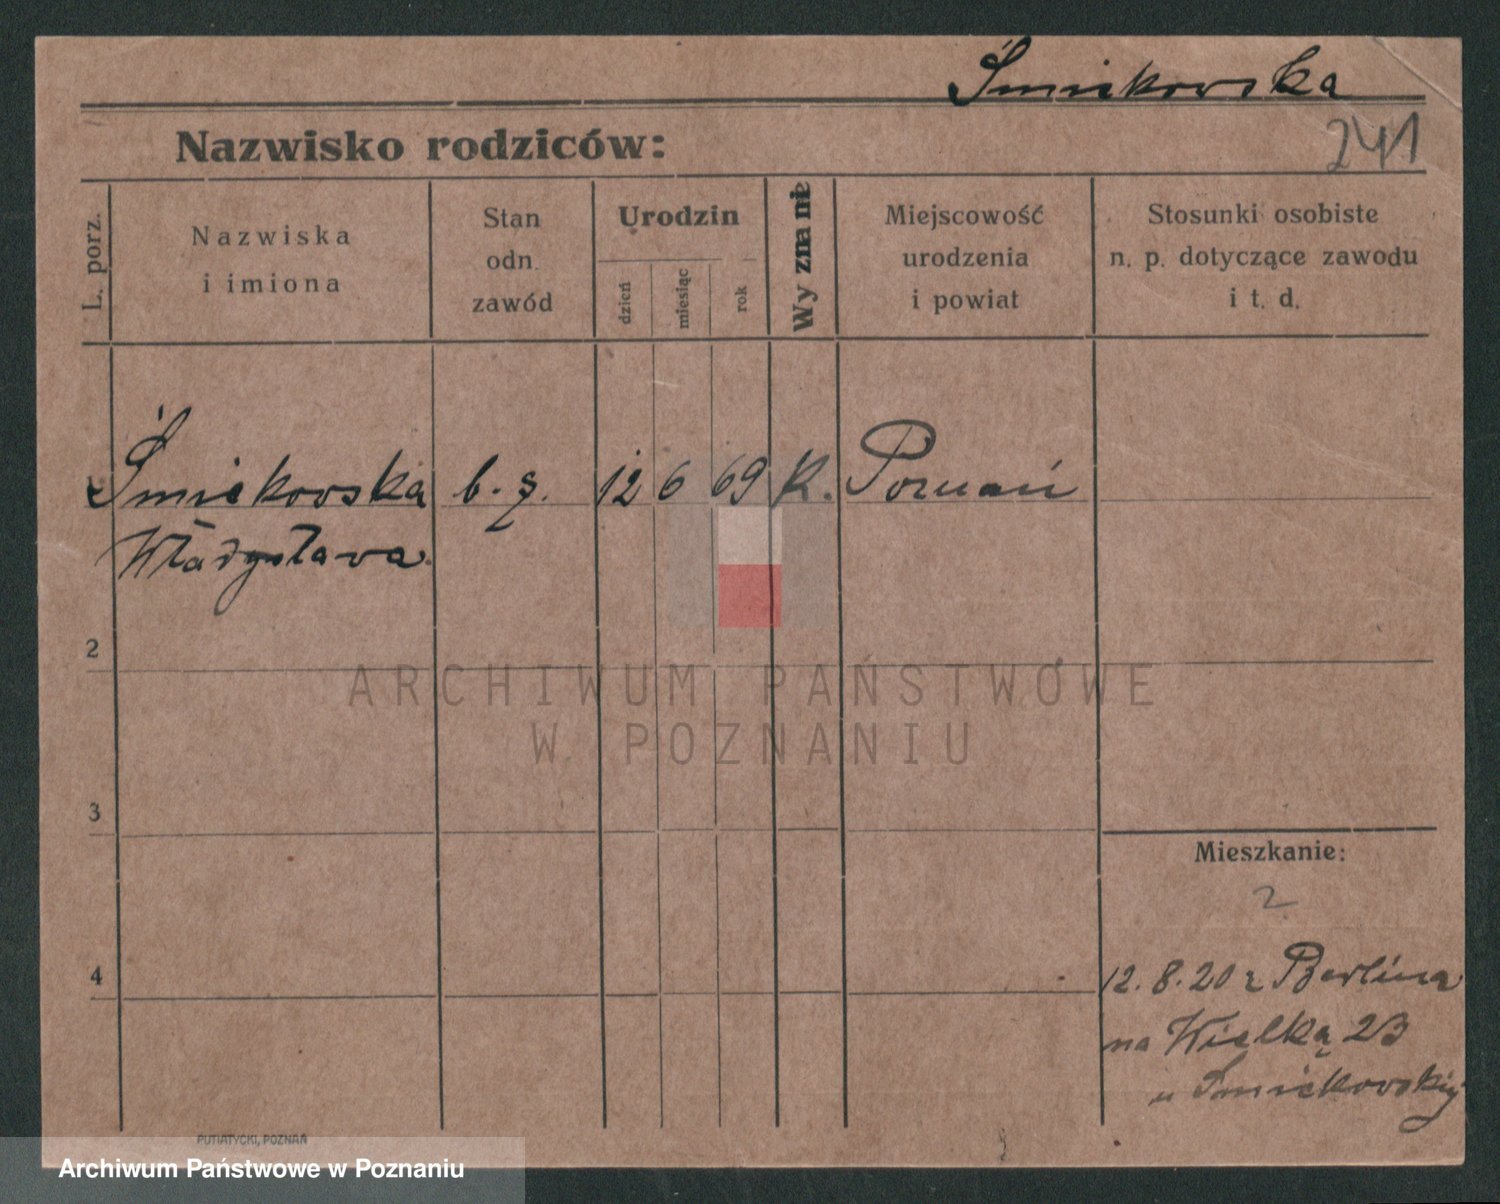 Śmiekowska
Nazwisko rodziców:
241
L. porz.
Nazwiska
i imiona
Stan
odn.
zawód
Urodzin
dzień
miesiąc
rok
Wyznanie
Miejscowość
urodzenia
i powiat
Stosunki osobiste
n. p. dotyczące zawodu
i t. d.
Śmiekowska b. z. 12 6 69 K. Poznań
Władysława
2
3
4
Mieszkanie:
2
12.8.20 z Berlina
na Wielką 23
u Śmiekowskiej
ARCHIWUM PAŃSTWOWE
W POZNANIU
PUTIATYCKI, POZNAŃ
Archiwum Państwowe w Poznaniu